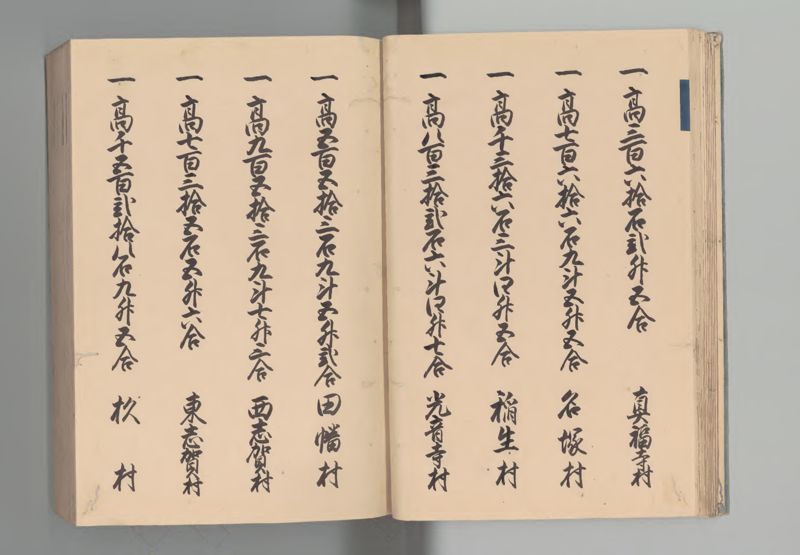 一 高三百六拾石弐升五合 真福寺村
一 高七百六拾六石九斗五升五合 名塚村
一 高千三拾六石三斗四升五合 稲生村
一 高八百三拾弐石六斗四升七合 光音寺村
一 高五百五拾三石九斗五升弐合 田幡村
一 高九百五拾三石九斗七升三合 西志賀村
一 高七百三拾五石五升六合 東志賀村
一 高千五百弐拾八石九升五合 杁村